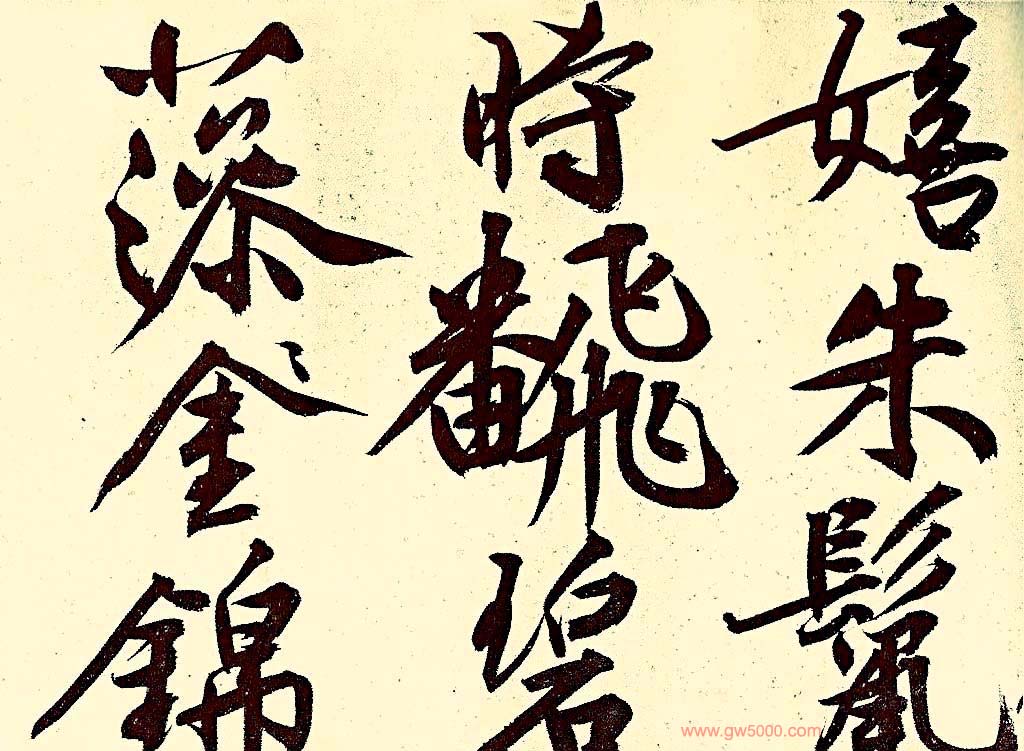 嬉朱鬣
時飜碧
藻金錦
www.gw5000.com